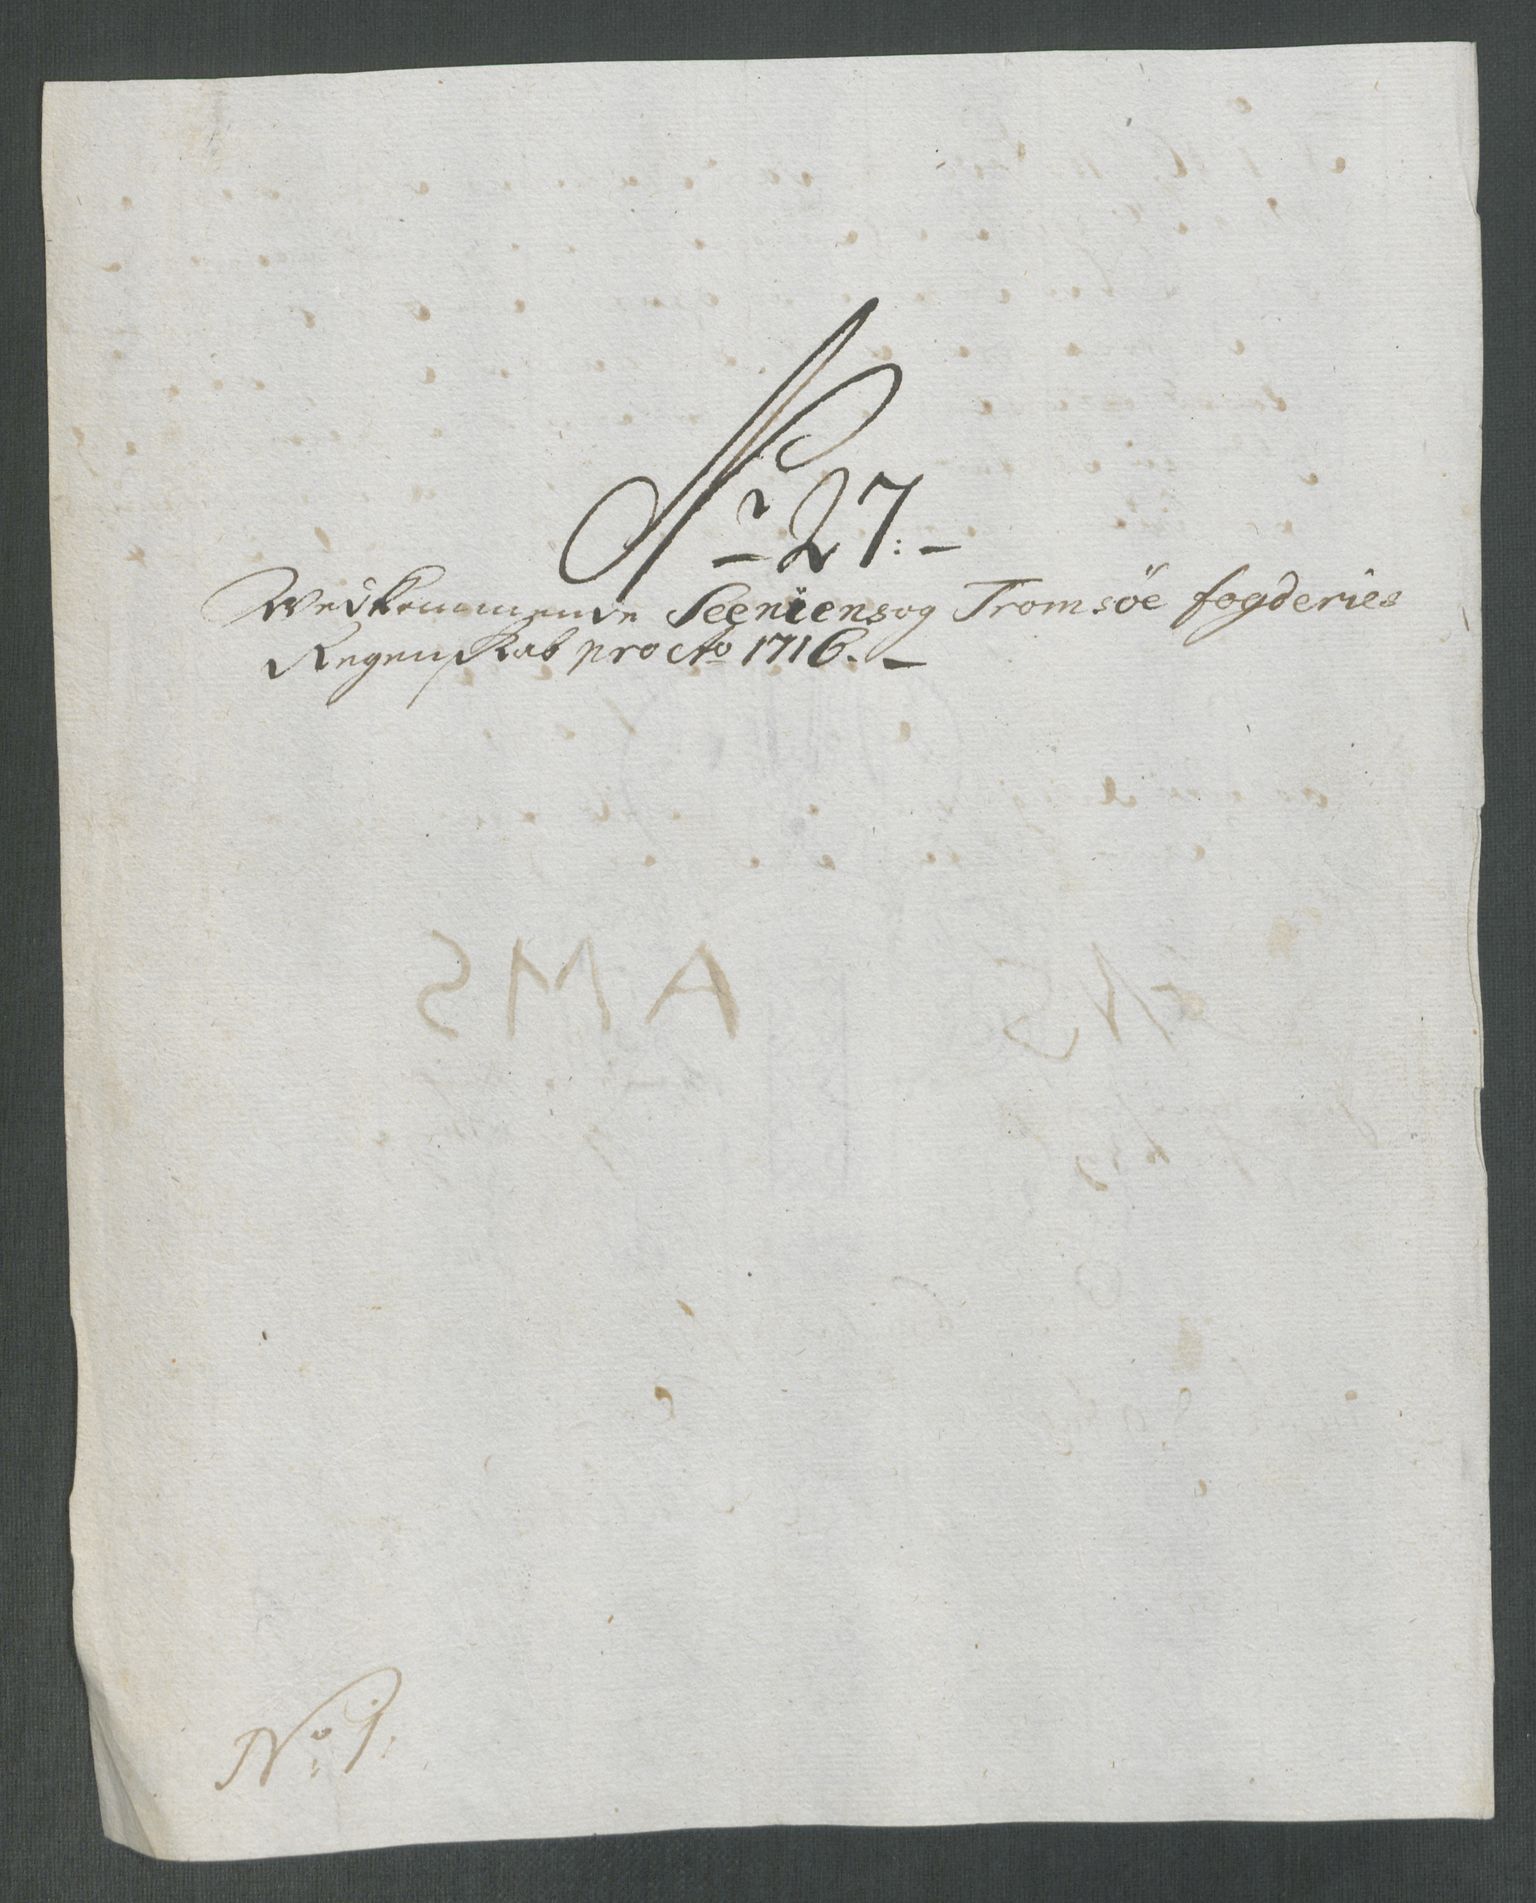 Nr 27.
Wedkommende Seeniens og Tromsöe fogderies
Regenskab pro Ao 1716.
No. 1.